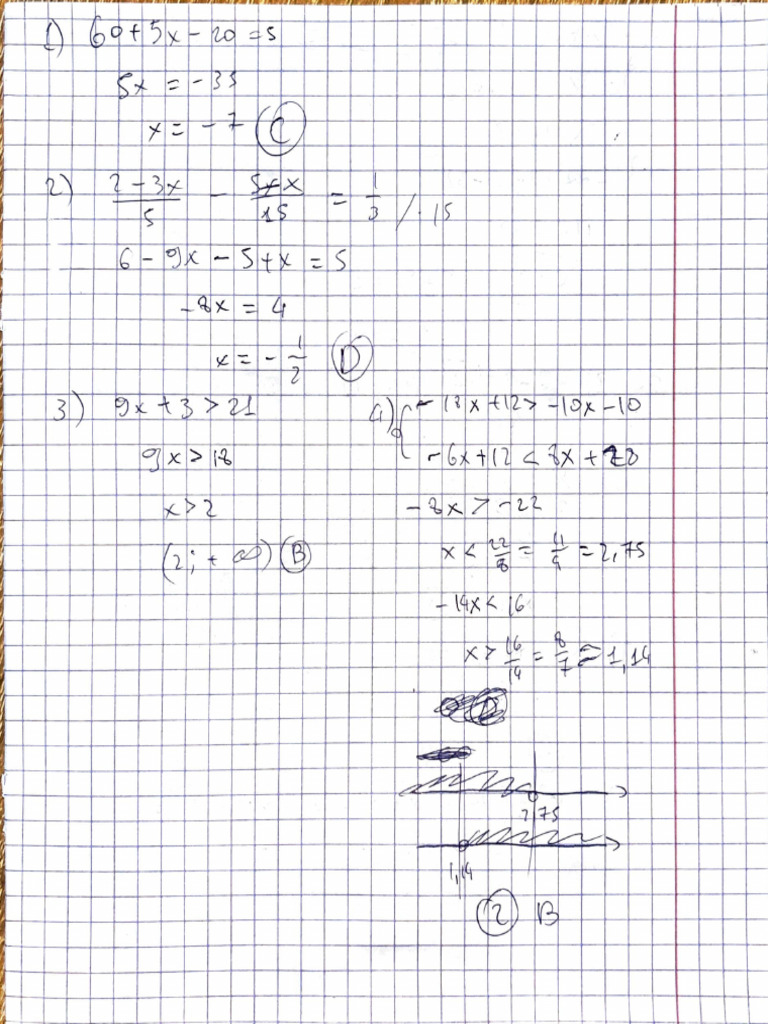 1) 60+5x-20=5
5x = -35
x = -7 C
2) (2-3x)/5 - (5-x)/15 = 1/3 /·15
6-9x-5+x=5
-8x = 4
x = -1/2 D
3) 9x+3>21
9x>18
x>2
(2;+∞) B
4) { -18x+12>-10x-10
-6x+12<8x+28
-8x>-22
x< 22/8 = 11/4 = 2,75
-14x<16
x> 16/14 = 8/7 = 1,14
2,75
1,14
2 B